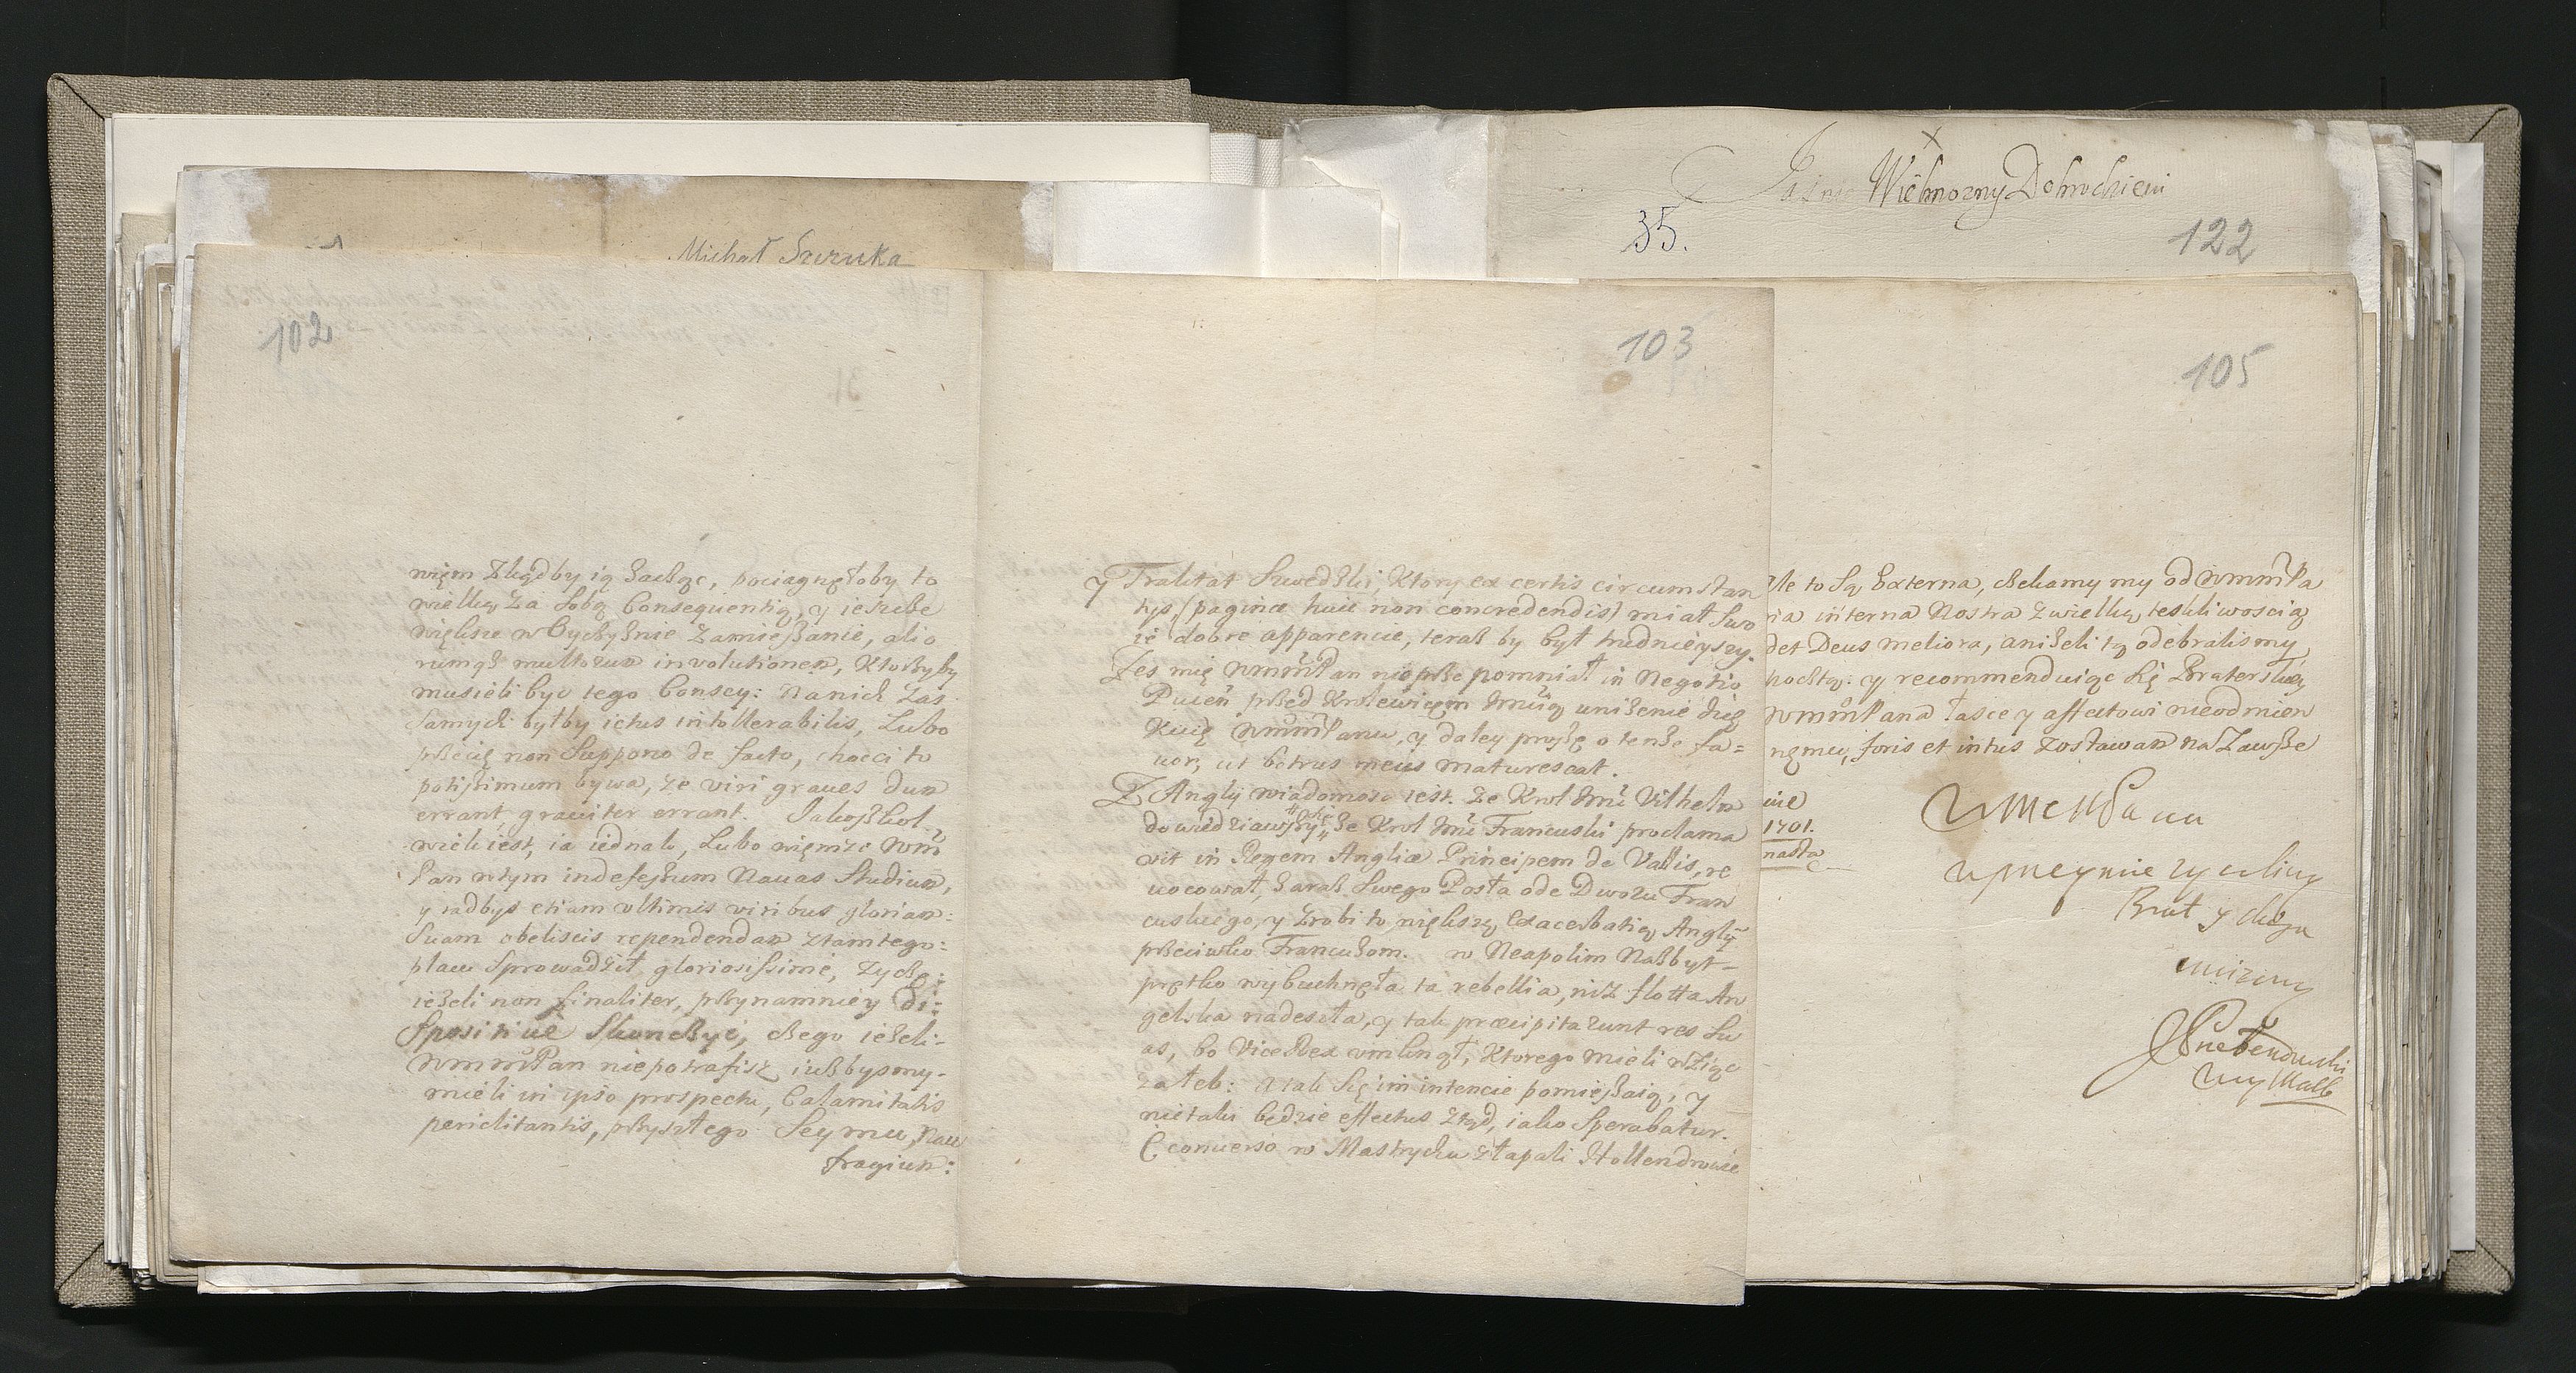 Michał Szczuka
Wielmozny Dobrodzieiu
35.
122
102
więm zkądby ią zacząc, pociągnęłoby to
wielką za sobą Consequentią, y ieszcze
większe w Oyczyznie zamieszanie, alio
rumq3 multorum involutionem, ktorzyby
musieli byc tego Conscy: Na nich zas
samych byłby ictus intollerabilis, Lubo
przecię non suppono de facto, choc ci to
potissimum bywa, ze viri graues dum
errant, grauiter errant. Jakoszkol
wiek iest, ia iednak, Lubo więm ze Wm̃
Pan w tym indefessum Nauas Studium,
y radbys etiam vltimis viribus gloriam
Suam obeliscis rependendam z tamtego
placu Sprowadził, gloriosissime, zyczę:
iezeli non finaliter, przynamniey di:
Spositiue Skonczyć, czego iezeli
WmmPan niepotrafisz, iuzbysmy
mieli in ipso prospectu, Calamitatis
periclitantis, przyszłego Seymu, Nau
fragium:
103
y Traktat Szwedzki, ktory ex certis circumstan
tys, (paginæ huic non concredendis) miał Swo
ie dobre apparencie, teraz by był trudnieyszy.
Zes mię WmmPan nieprzepomniał in Negotio
Pucen przed Krolewicem Jmcią unizenie dzię
kuię WmmPanu, y daley proszę o tenze fa=
uor, ut botrus meus maturescat.
Z Anglij wiadomosc iest. ze Krol Jmc Vilhelm
dowiedziawszy się ze Krol Jmc Francuski proclama
vit in Regem Angliæ Principem de Vallis, re
uocował, zaraz Swego Posła ode Dworu Fran
cuskiego, y zrobi to większą Exacerbatią Anglij
przeciwko Francuzom. w Neapolim Nazbyt
prętko wybuchnęła ta rebellia, niz flotta An
gelska nadeszła, y tak præcipitarunt res Su
as, bo ViceRex vmknął, ktorego mieli wziąc
za łeb: a tak się im intencie pomieszaią, y
nie taki będzie effectus ztąd, iako Sperabatur.
E conuerso w Mastrychu złapali Hollendrowie
105
Ale to Są Externa, czekamy my od WmmPa
na interna Nostra z wielką teskliwoscią
det Deus meliora, anizeli tę odebralismy
pocztą: y recommenduiąc się Braterskiey
WmmPana łasce y affektowi nieodmien
nęmu, foris et intus zostawam na Zawsze
1701.
WMMPana
uprzeymie zyczliwy
Brat y sługa
unizony